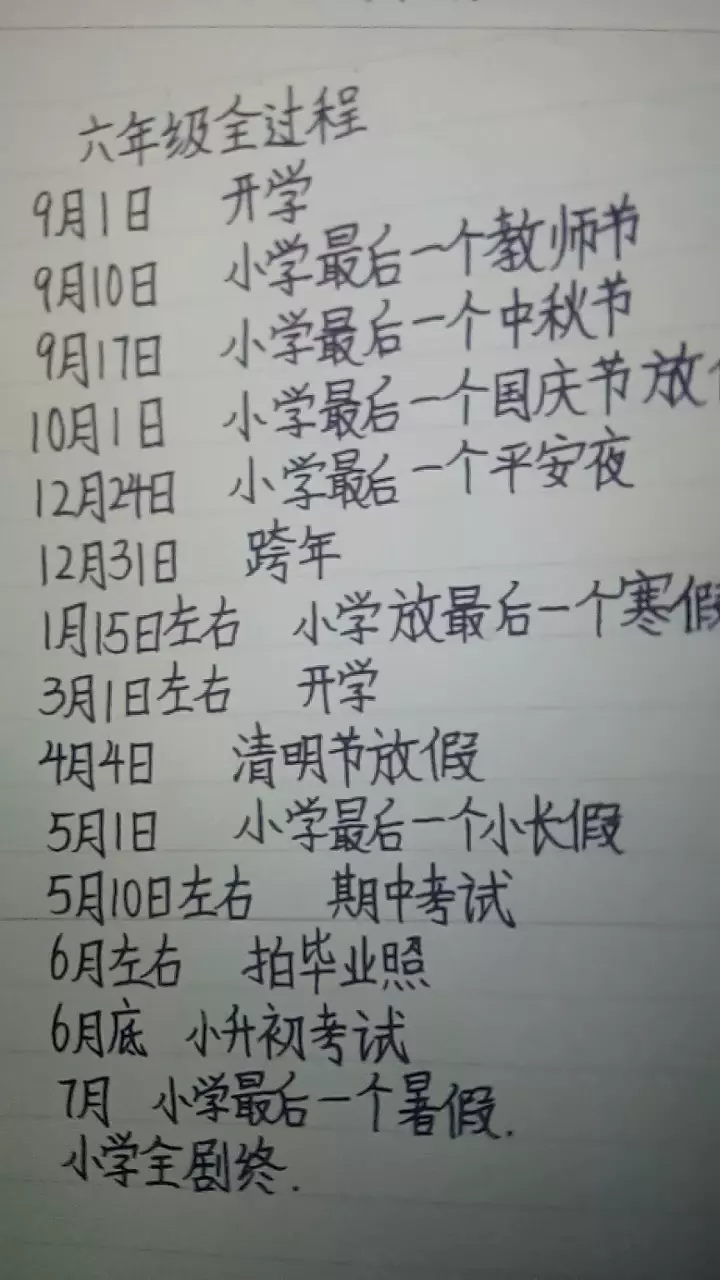 六年级全过程
9月1日 开学
9月10日 小学最后一个教师节
9月17日 小学最后一个中秋节
10月1日 小学最后一个国庆节放
12月24日 小学最后一个平安夜
12月31日 跨年
1月15日左右 小学放最后一个寒假
3月1日左右 开学
4月4日 清明节放假
5月1日 小学最后一个小长假
5月10日左右 期中考试
6月左右 拍毕业照
6月底 小升初考试
7月 小学最后一个暑假.
小学全剧终.